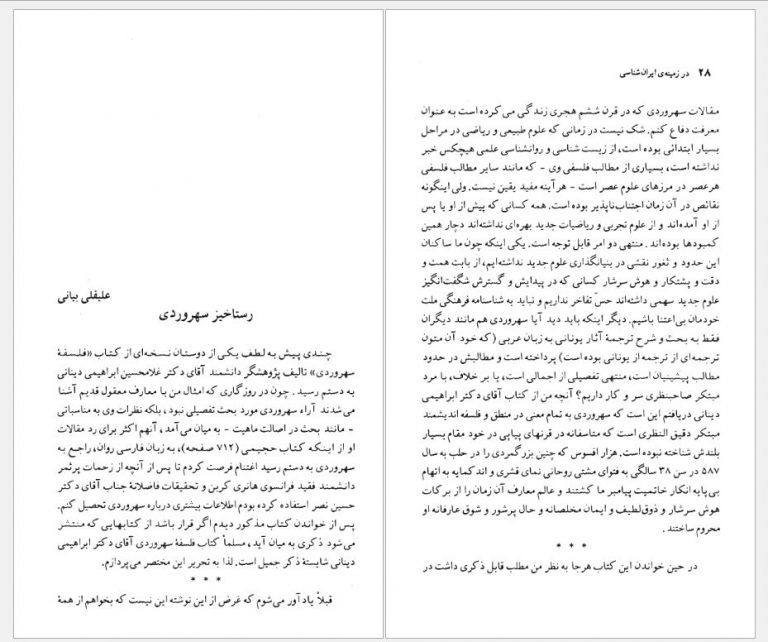 علیقلی بیانی
رستاخیز سهروردی
چندی پیش به لطف یکی از دوستان نسخه‌ای از کتاب «فلسفهٔ
سهروردی» تالیف پژوهشگر دانشمند آقای دکتر غلامحسین ابراهیمی دینانی
به دستم رسید. چون در روزگاری که امثال من با معارف معقول قدیم آشنا
می‌شدند آراء سهروردی مورد بحث تفصیلی نبود، بلکه نظرات وی به مناسباتی
- مانند بحث در اصالت ماهیت - به میان می‌آمد، آنهم اکثر برای رد مقالات
او از اینکه کتاب حجیمی (۷۱۲ صفحه)، به زبان فارسی روان، راجع به
سهروردی به دستم رسید اغتنام فرصت کردم تا پس از آنچه از زحمات پرثمر
دانشمند فقید فرانسوی هانری کربن و تحقیقات فاضلانهٔ جناب آقای دکتر
حسین نصر استفاده کرده بودم اطلاعات بیشتری درباره سهروردی تحصیل کنم.
پس از خواندن کتاب مذکور دیدم اگر قرار باشد از کتابهایی که منتشر
می‌شود ذکری به میان آید، مسلماً کتاب فلسفهٔ سهروردی آقای دکتر ابراهیمی
دینانی شایستهٔ ذکر جمیل است. لذا به تحریر این مختصر می‌پردازم.
* * *
قبلاً یادآور می‌شوم که غرض از این نوشته این نیست که بخواهم از همهٔ
۲۸ در زمینه‌ی ایران‌شناسی
مقالات سهروردی که در قرن ششم هجری زندگی می‌کرده است به عنوان
معرفت دفاع کنم. شک نیست در زمانی که علوم طبیعی و ریاضی در مراحل
بسیار ابتدائی بوده است، از زیست شناسی و روانشناسی علمی هیچکس خبر
نداشته است، بسیاری از مطالب فلسفی وی - که مانند سایر مطالب فلسفی
هرعصر در مرزهای علوم عصر است - هرآینه مفید یقین نیست. ولی اینگونه
نقائص در آن زمان اجتناب‌ناپذیر بوده است. همه کسانی که پیش از او یا پس
از او آمده‌اند و از علوم تجربی و ریاضیات جدید بهره‌ای نداشته‌اند دچار همین
کمبودها بوده‌اند. منتهی دو امر قابل توجه است. یکی اینکه چون ما ساکنان
این حدود و ثغور نقشی در بنیانگذاری علوم جدید نداشته‌ایم، از بابت همت و
دقت و پشتکار و هوش سرشار کسانی که در پیدایش و گسترش شگفت‌انگیز
علوم جدید سهمی داشته‌اند حسّ تفاخر نداریم و نباید به شناسنامه فرهنگی ملت
خودمان بی‌اعتنا باشیم. دیگر اینکه باید دید آیا سهروردی هم مانند دیگران
فقط به بحث و شرح ترجمهٔ آثار یونانی به زبان عربی (که خود آن متون
ترجمه‌ای از ترجمه از یونانی بوده است) پرداخته است و مطالبش در حدود
مطالب پیشینیان است، منتهی تفصیلی از اجمالی است، یا بر خلاف، با مرد
مبتکر صاحبنظری سر و کار داریم؟ آنچه من از کتاب آقای دکتر ابراهیمی
دینانی دریافتم این است که سهروردی به تمام معنی در منطق و فلسفه اندیشمند
مبتکر دقیق النظری است که متاسفانه در قرنهای پیاپی در خود مقام بسیار
بلندش شناخته نبوده است. هزار افسوس که چنین بزرگمردی را در حلب به سال
۵۸۷ در سن ۳۸ سالگی به فتوای مشتی روحانی نمای قشری و اند کمایه به اتهام
بی‌پایه انکار خاتمیت پیامبر ما کشتند و عالم معارف آن زمان را از برکات
هوش سرشار و ذوق‌لطیف و ایمان مخلصانه و حال پرشور و شوق عارفانه او
محروم ساختند.
* * *
در حین خواندن این کتاب هرجا به نظر من مطلب قابل ذکری داشت در